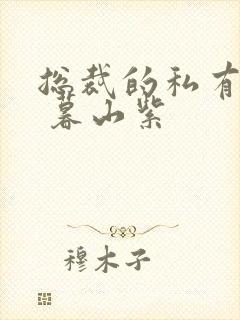 总裁的私有
暮山紫
穆木子